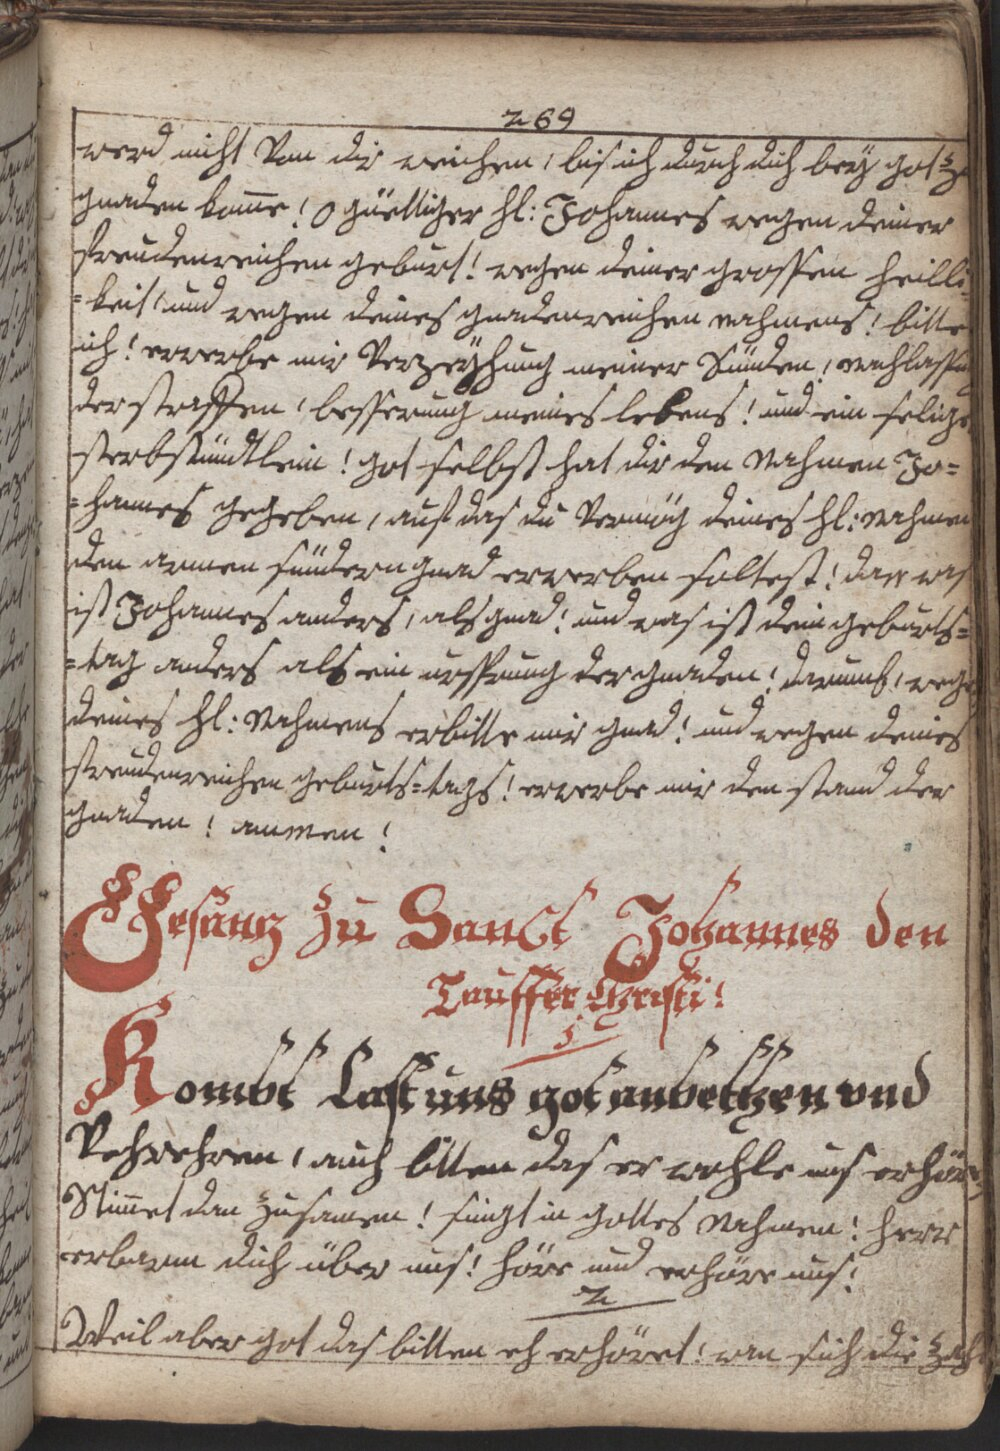 269
werd nicht Von dir weichen, bis ich durch dich bey got zu
gnaden kom̄e! O güettiger hl: Johannes wegen deiner
freudenreichen geburt! wegen deiner grossen heilli=
=keit! und wegen deines gnadenreichen nahmens! bitte
ich! erwerbe mir Verzeÿhung meiner Sünden, nachlassung
der straffen, besserung meines lebens! und ein seliges
sterbstündtlein! got selbst hat dir den Nahmen Jo=
=hannes gegeben, auf das du Vermög deines hl: Nahmen
den armen sündern gnad erwerben soltest! dan was
ist Johannes anders, als gnad! und was ist dein geburts=
=tag anders als ein ursprung der gnaden! darumb, wegen
deines hl: Nahmens erbitte mir gnad! und wegen deines
freudenreichen geburts=tags! erwerbe mir den stand der
gnaden! ammen!
Gesang zu Sanct Johannes den
Tauffer Christi!
1
Kombt Last uns got anbethen und
Verehren, auch bitten das er wohle uns erhören
Stim̄et dan zusamen! singt in gottes Nahmen! herr
erbarm dich über uns! höre und erhöre uns!
2
Weil aber got das bitten eh erhöret! wan sich die zahl